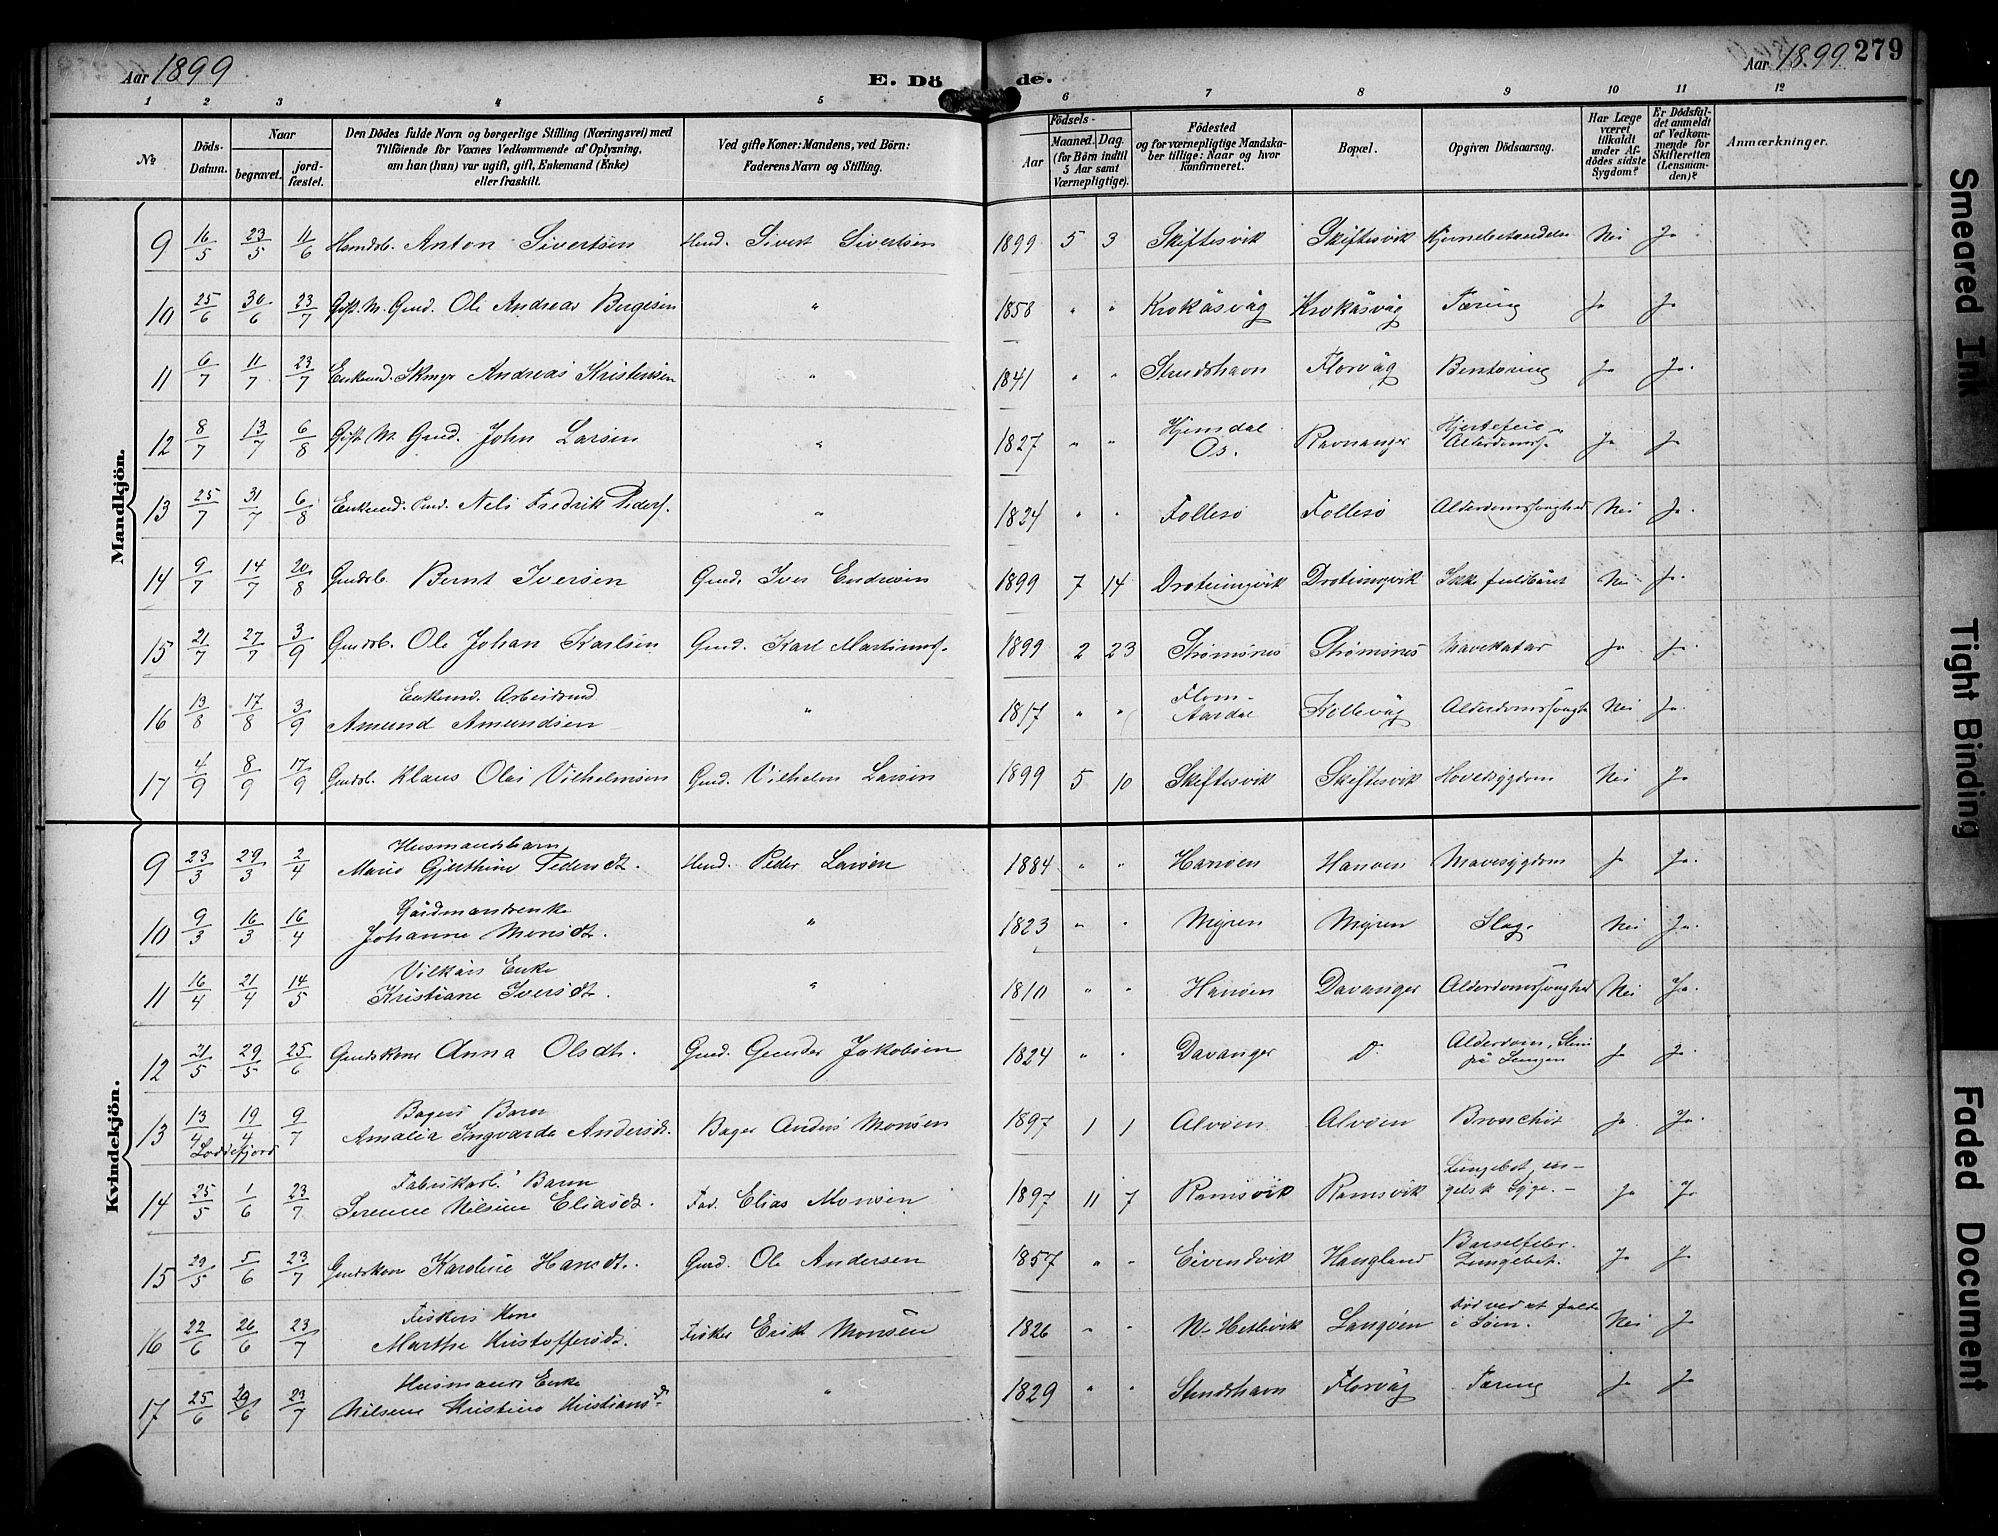 Aar 1899
E. Dö de.
Aar 1899. 279
1 2 3 4 5 6 7 8 9 10 11 12
No
Döds-Datum.
Naar
begravet.
jord-fæstet.
Den Dödes fulde Navn og borgerlige Stilling (Næringsvei) med
Tilföiende for Voxnes Vedkommende af Oplysning,
om han (hun) var ugift, gift, Enkemand (Enke)
eller fraskilt.
Ved gifte Koner: Mandens, ved Börn:
Faderens Navn og Stilling.
Födsels-
Aar
Maaned. Dag.
(for Børn indtil
5 Aar samt
Værnepligtige).
Födested
og for værnepligtige Mandska-
ber tillige: Naar og hvor
konfirmeret.
Bopæl.
Opgiven Dödsaarsag.
Har Læge
været
tilkaldt
under Af-
dödes sidste
Sygdom?
Er Dödsfal-
det anmeldt
af Vedkom-
mende for
Skifteretten
(Lensman-
den)?
Anmærkninger.
Mandkjön.
9 16/5 23/5 11/6 Hmdsb. Anton Sivertsen Hmd. Sivert Sivertsen 1899 5 3 Skiftesvik Skiftesvik Hjernebetændelse Nei Ja
10 25/6 30/6 23/7 Gift M. Gmd. Ole Andreas Børgesen " 1858 " " Krokåsvåg Krokåsvåg Tæring Ja Ja
11 6/7 11/7 23/7 Enkemd. Skmgr Andreas Kristensen " 1841 " " Strudshavn Florvåg Bentæring Ja Ja.
12 8/7 13/7 6/8 Gift M. Gmd. John Larsen " 1827 " " Hjemdal Os. Ravnanger Hjertefeil Alderdomss. Ja Ja
13 25/7 31/7 6/8 Enkemd. Gmd. Nels Fredrik Peders. " 1824 " " Follesø Follesø Alderdomssvaghed Nei Ja.
14 9/7 14/7 20/8 Gmdsb. Bernt Iversen Gmd. Iver Endresen 1899 7 14 Drotningvik Drotningvik Ikke fuldbåret Nei Ja.
15 21/7 27/7 3/9 Gmdsb. Ole Johan Karlsen Gmd. Karl Martinus. 1899 2 23 Strømsnes Strømsnes Mavekatar Ja Ja.
16 13/8 17/8 3/9 Enkemd. Arbeidsmd
Amund Amundsen " 1817 " " Flom- Aardal Follevåg Alderdomssvagh. Nei Ja.
17 4/9 8/9 17/9 Gmdsb. Klaus Olai Vilhelmsen Gmd. Vilhelm Larsen 1899 5 10 Skiftesvik Skiftesvik Hovedsygdom Nei Ja
Kvindekjön.
9 23/3 29/3 2/4 Husmandsbarn
Marie Gjerthine Pedersdt. Hmd. Peder Larsen 1884 " " Hanøen Hanøen Mavesygdom Ja Ja.
10 9/3 16/3 16/4 Gårdmandsenke
Johanne Monsdt. " 1823 " " Myren Myren Slag. Nei Ja.
11 16/4 21/4 14/5 Vilkårs Enke
Kristiane Iversdt. " 1810 " " Hanøen Davanger Alderdomssvaghed Nei Ja.
12 21/5 29/5 25/6 Gmdskone Anna Olsdt. Gmd. Gunder Jakobsen 1824 " " Davanger D. Alderdom, Slim
på Lungen Ja Ja.
13 13/4 19/4 9/7 Bagers Barn
Loddefjord Amalia Ingvarda Andersdt. Bager Anders Monsen 1897 1 1 Alvøen Alvøen Bronchit Ja Ja.
14 25/5 1/6 23/7 Fabrikarb. Barn
Serene Nilsine Eliasdt. Fab. Elias Monsen 1897 11 7 Ramsvik Ramsvik Lungebet. en-
gelsk Syge. Ja Ja
15 29/5 5/6 23/7 Gmdskone Karoline Hansdt. Gmd. Ole Andersen 1857 " " Eivendvik Haugland Barselfeber.
Lungebet. Ja Ja
16 22/6 26/6 23/7 Fiskers Kone
Marthe Kristoffersdt. Fisker Erik Monsen 1826 " " N. Hetlevik Langøen Død ved at falde
i Søen. Nei Ja
17 25/6 29/6 23/7 Husmands Enke
Nilsene Kristine Kristiansdt. " 1829 " " Strudshavn Florvåg Tæring Ja Ja
Smeared Ink
Tight Binding
Faded Document